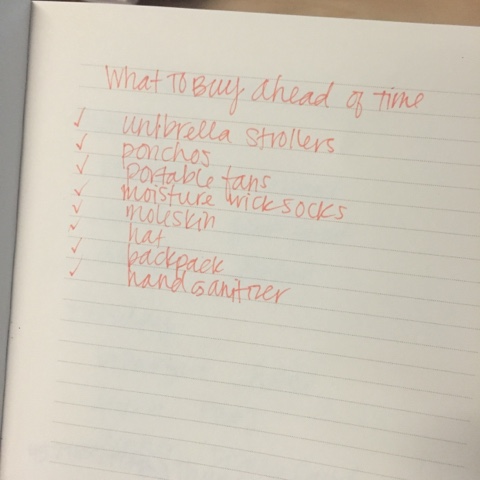 What To Buy ahead of Time
✓ umbrella strollers
✓ ponchos
✓ portable fans
✓ moisture wick socks
✓ moleskin
✓ hat
✓ backpack
✓ hand sanitizer